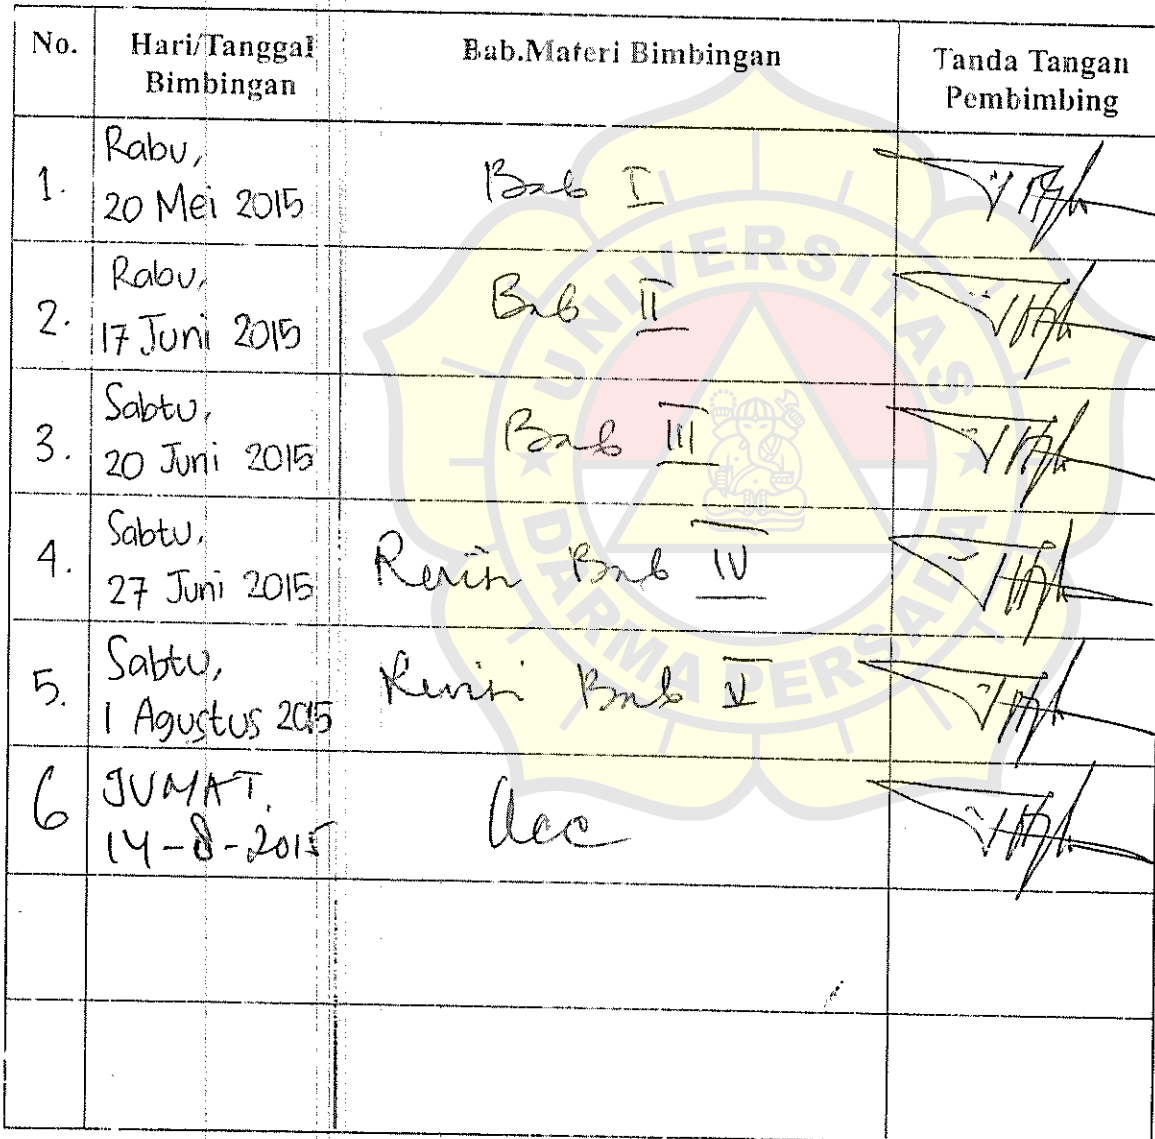 No.
Hari/Tanggal
Bimbingan
Bab.Materi Bimbingan
Tanda Tangan
Pembimbing
1.
Rabu,
20 Mei 2015
Bab I
2.
Rabu,
17 Juni 2015
Bab II
3.
Sabtu,
20 Juni 2015
Bab III
4.
Sabtu,
27 Juni 2015
Revisi Bab IV
5.
Sabtu,
1 Agustus 2015
Revisi Bab V
6
JUMAT,
14-8-2015
Acc
UNIVERSITAS
DARMA PERSADA